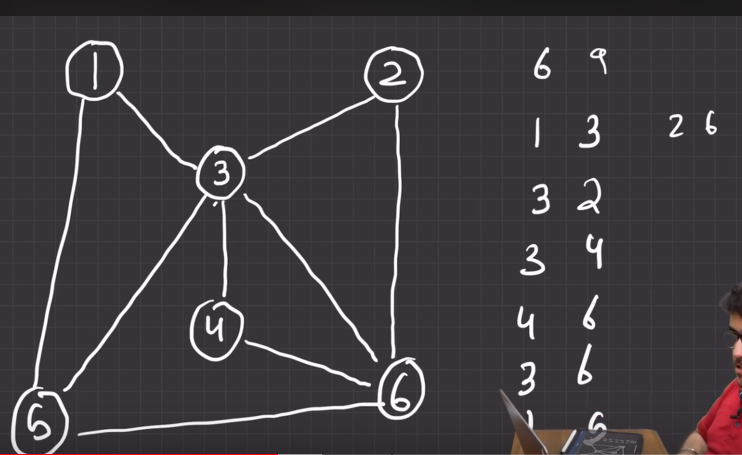 1
2
3
4
5
6
6 9
1 3
2 6
3 2
3 4
4 6
3 6